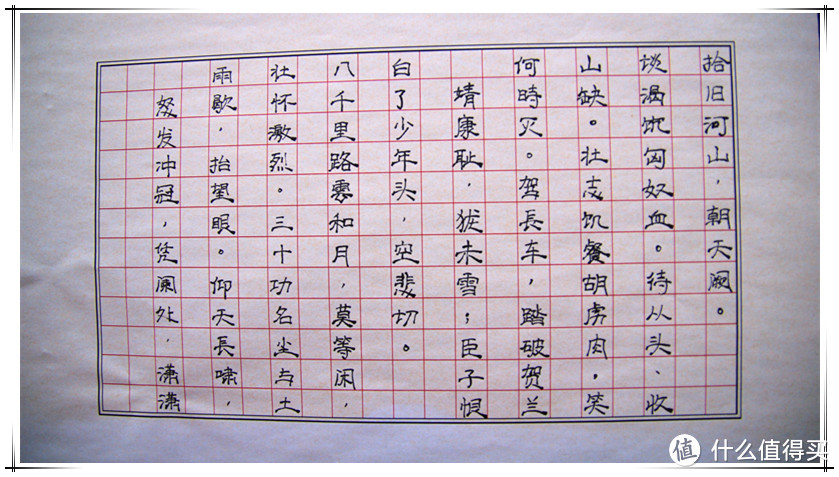 怒发冲冠，凭阑处，潇潇
雨歇，抬望眼。仰天長啸，
壮怀激烈。三十功名尘与土
八千里路雲和月，莫等闲，
白了少年头，空悲切。
靖康耻，犹未雪；臣子恨
何時灭。驾長车，踏破贺兰
山缺。壮志饥餐胡虏肉，笑
谈渴饮匈奴血。待从头、收
拾旧河山，朝天阙。
值 什么值得买